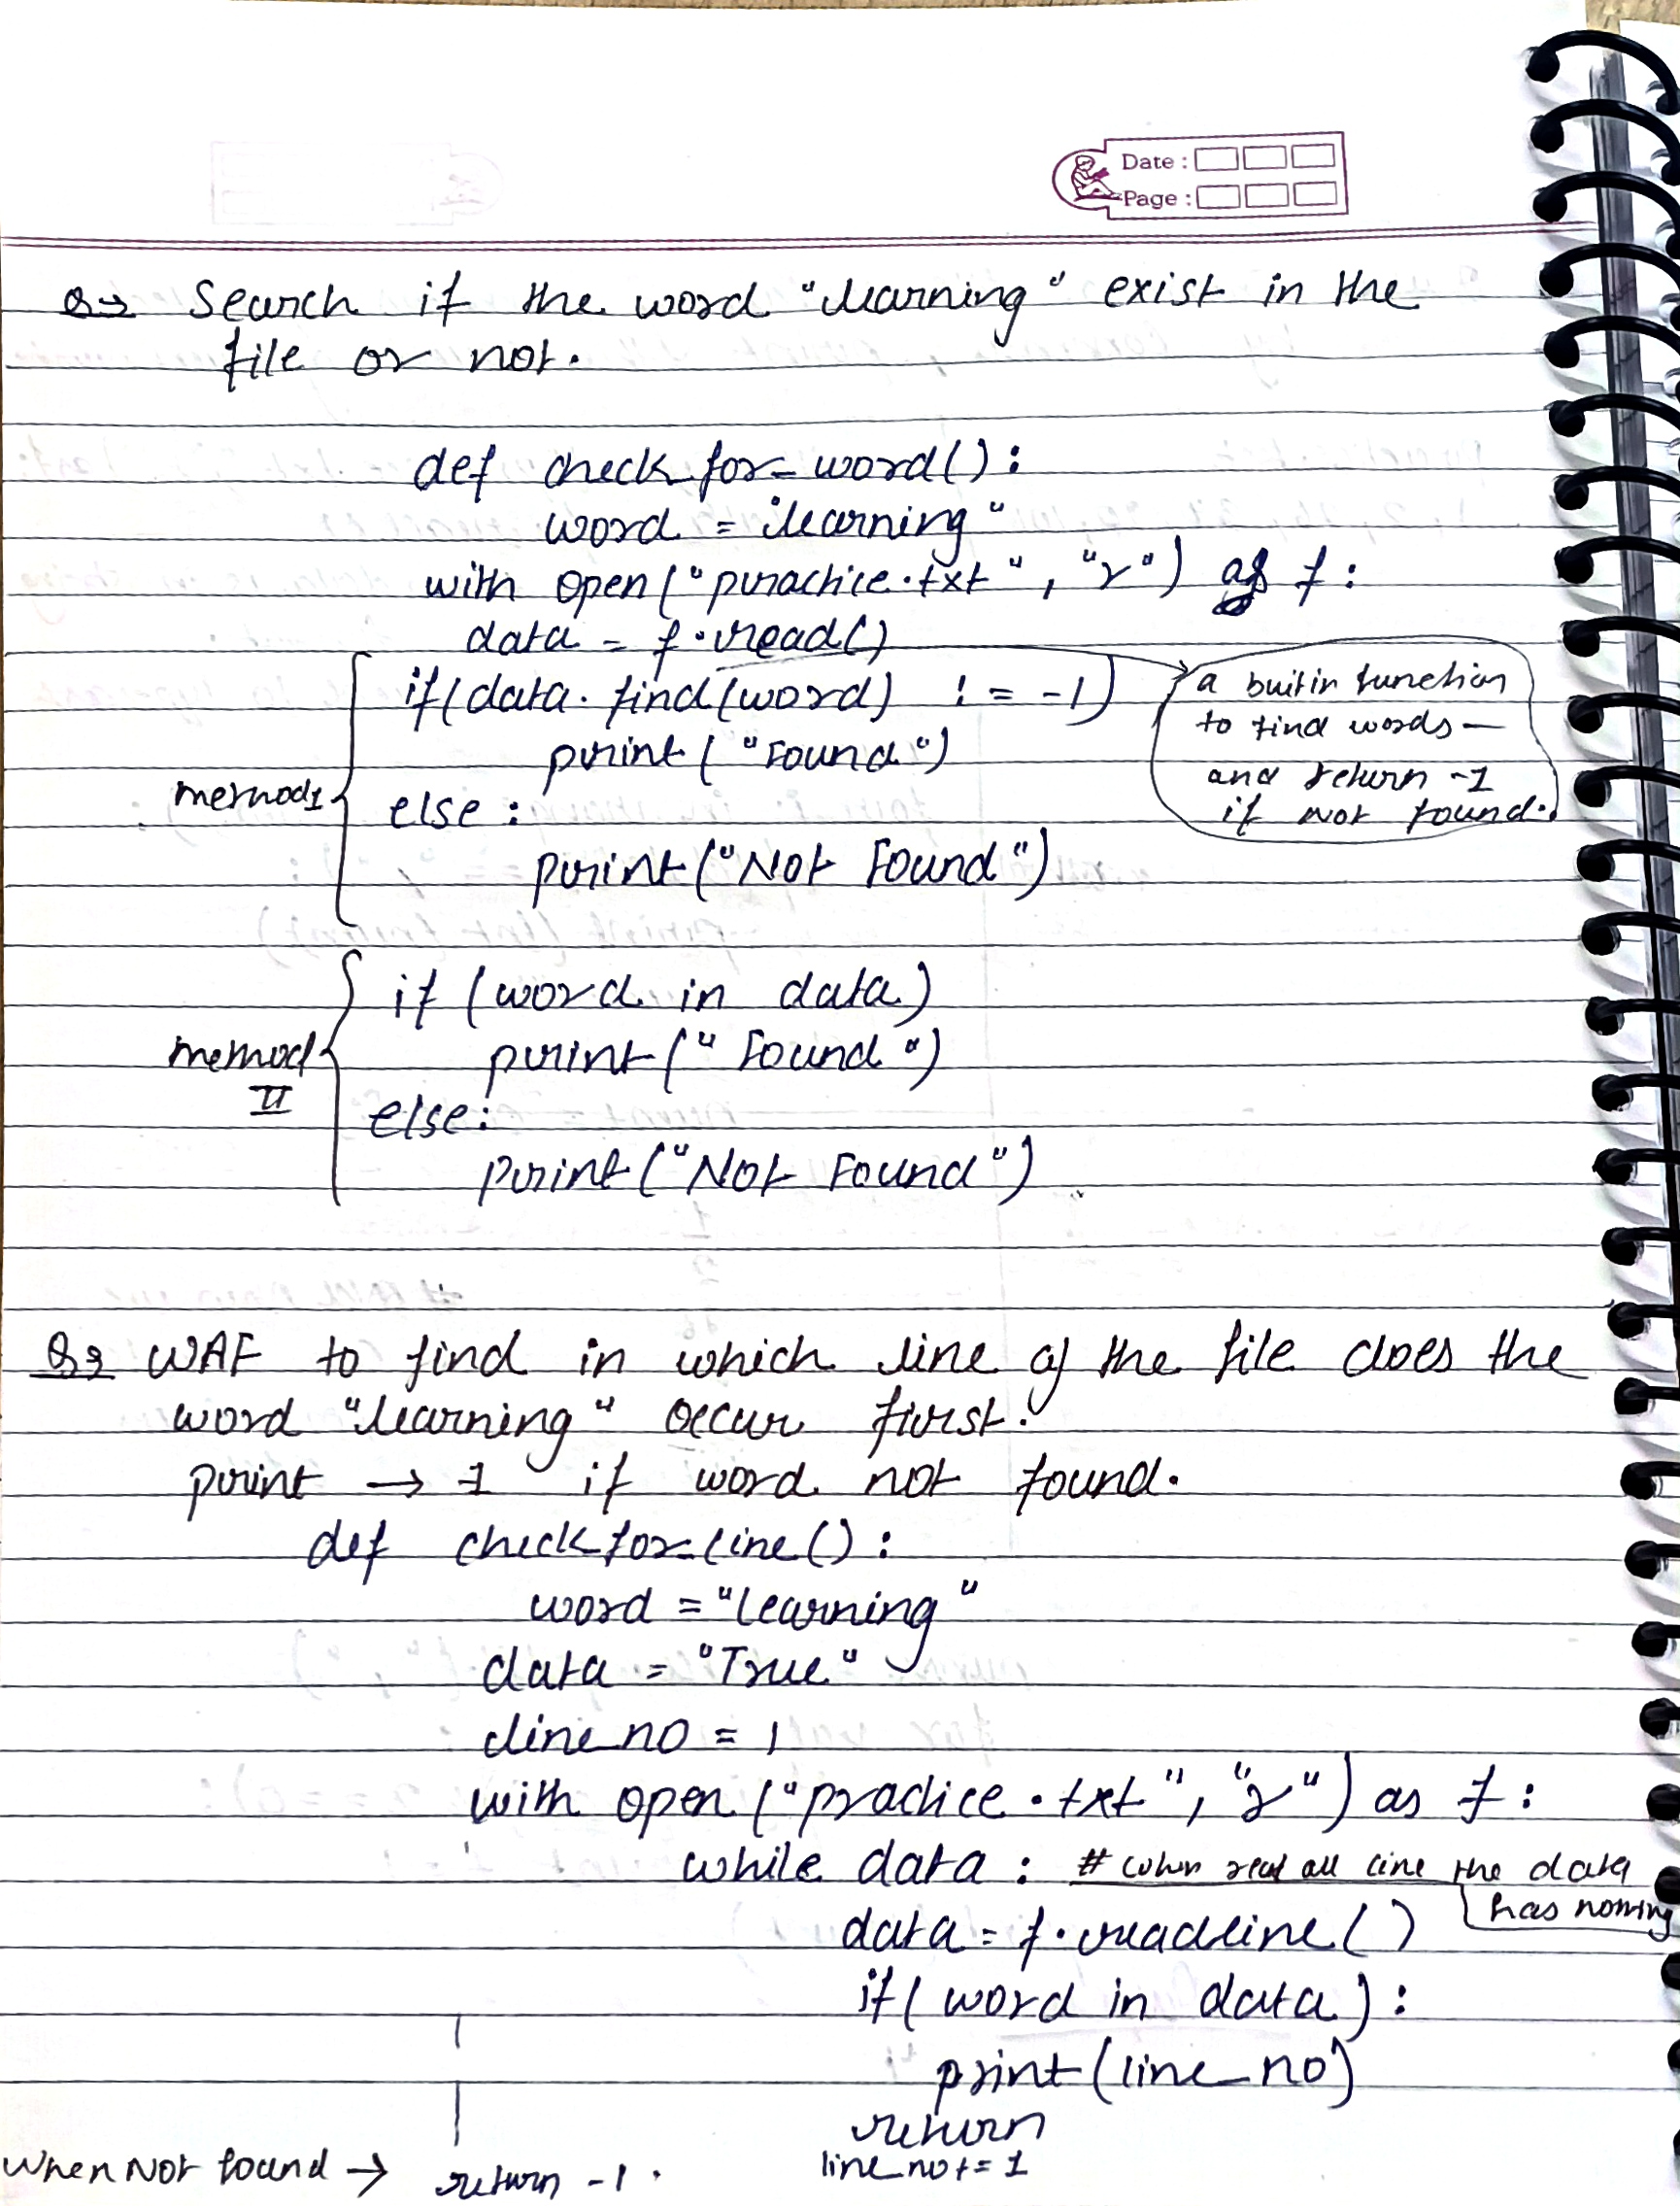 Date :
Page :
Q→ Search if the word "learning" exist in the
file or not.
def check_for_word():
word = "learning"
with open("practice.txt", "r") as f:
data = f.read()
if(data.find(word) != -1)
print("Found")
else:
print("Not Found")
method1
a builtin function
to find words
and return -1
if Not found.
if (word in data)
print("Found")
else:
print("Not Found")
method
II
WAF to find in which line of the file does the
word "learning" occur first.
print → 1 if word not found.
def check_for_line():
word = "learning"
data = "True"
line_no = 1
with open("practice.txt", "r") as f:
while data: # when read all line the data
has nothing
data = f.readline()
if(word in data):
print(line_no)
return
line_no += 1
When Not found → return -1.